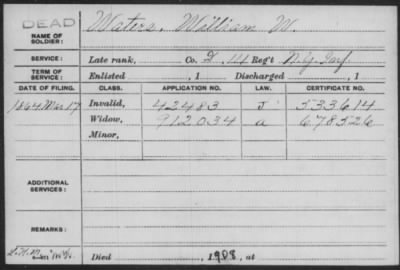 DEAD
NAME OF SOLDIER: Waters, William W.
SERVICE: Late rank, Co. D, 14 Reg't N.Y. Inf.
TERM OF SERVICE: Enlisted , 1 Discharged , 1
DATE OF FILING. CLASS. APPLICATION NO. LAW. CERTIFICATE NO.
1864 Mar 17 Invalid, 42483 J 533614
Widow, 912034 a 678526
Minor,
ADDITIONAL SERVICES:
REMARKS:
Died , 1908, at